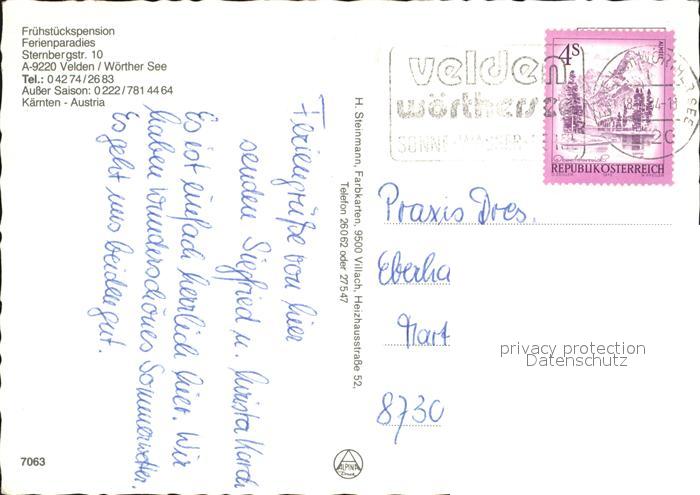 Frühstückspension
Ferienparadies
Sternbergstr. 10
A-9220 Velden / Wörther See
Tel.: 0 42 74 / 26 83
Außer Saison: 0 222 / 781 44 64
Kärnten - Austria
Feriengrüße von hier
senden Siegfried u. Christa
Es ist einfach herrlich hier. Wir
haben wunderschönes Sommerwetter.
Es geht uns beiden gut.
7063
ALPINA
H. Steinmann, Farbkarten, 9500 Villach, Heizhausstraße 52,
Telefon 26062 oder 27547
velden
wörthersee
4 S
REPUBLIK ÖSTERREICH
Praxis Dres.
Eberha
Hart
8730
privacy protection
Datenschutz